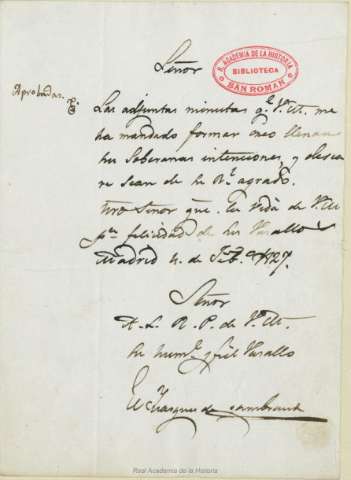 Señor
R. ACADEMIA DE LA HISTORIA
BIBLIOTECA
SAN ROMAN
Aprobadas.
Las adjuntas minutas q.e V. M. me
ha mandado formar creo llenan
sus Soberanas intenciones, y deseare
sean de su R.l agrado.
Ntro Señor que. la vida de V. M.
p.a felicidad de sus Vasallos
Madrid 4. de Feb.o 1827.
Señor
A. L. R. P. de V. M.
su hum.e y fiel Vasallo
El Marques de Zambrano
Real Academia de la Historia